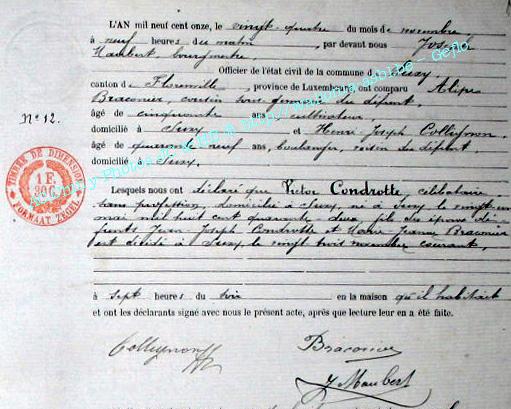 L'AN mil neuf cent onze, le vingt-quatre du mois de novembre
à neuf heures du matin, par devant nous Joseph
Maubert, bourgmestre,
Officier de l'état civil de la commune de Suxy
canton de Florenville, province de Luxembourg, ont comparu Alipe
Braconier, cousin sous-germain du défunt,
âgé de cinquante ans cultivateur,
N° 12.
domicilié à Suxy et Henri-Joseph Collignon,
âgé de quarante neuf ans, boulanger, voisin du défunt
domicilié à Suxy,
TIMBRE DE DIMENSION
1 F.
20 C.
FORMAAT ZEGEL
Lesquels nous ont déclaré que Victor Condrotte, célibataire
sans profession, domicilié à Suxy, né à Suxy le vingt-un
mai mil huit cent quarante-deux, fils des époux dé-
funts Jean-Joseph Condrotte et Marie-Jeanne Braconier
est décédé à Suxy, le vingt trois novembre courant,
à sept heures du soir en la maison qu'il habitait
et ont les déclarants signé avec nous le présent acte, après que lecture leur en a été faite.
Collignon
Braconier
J Maubert